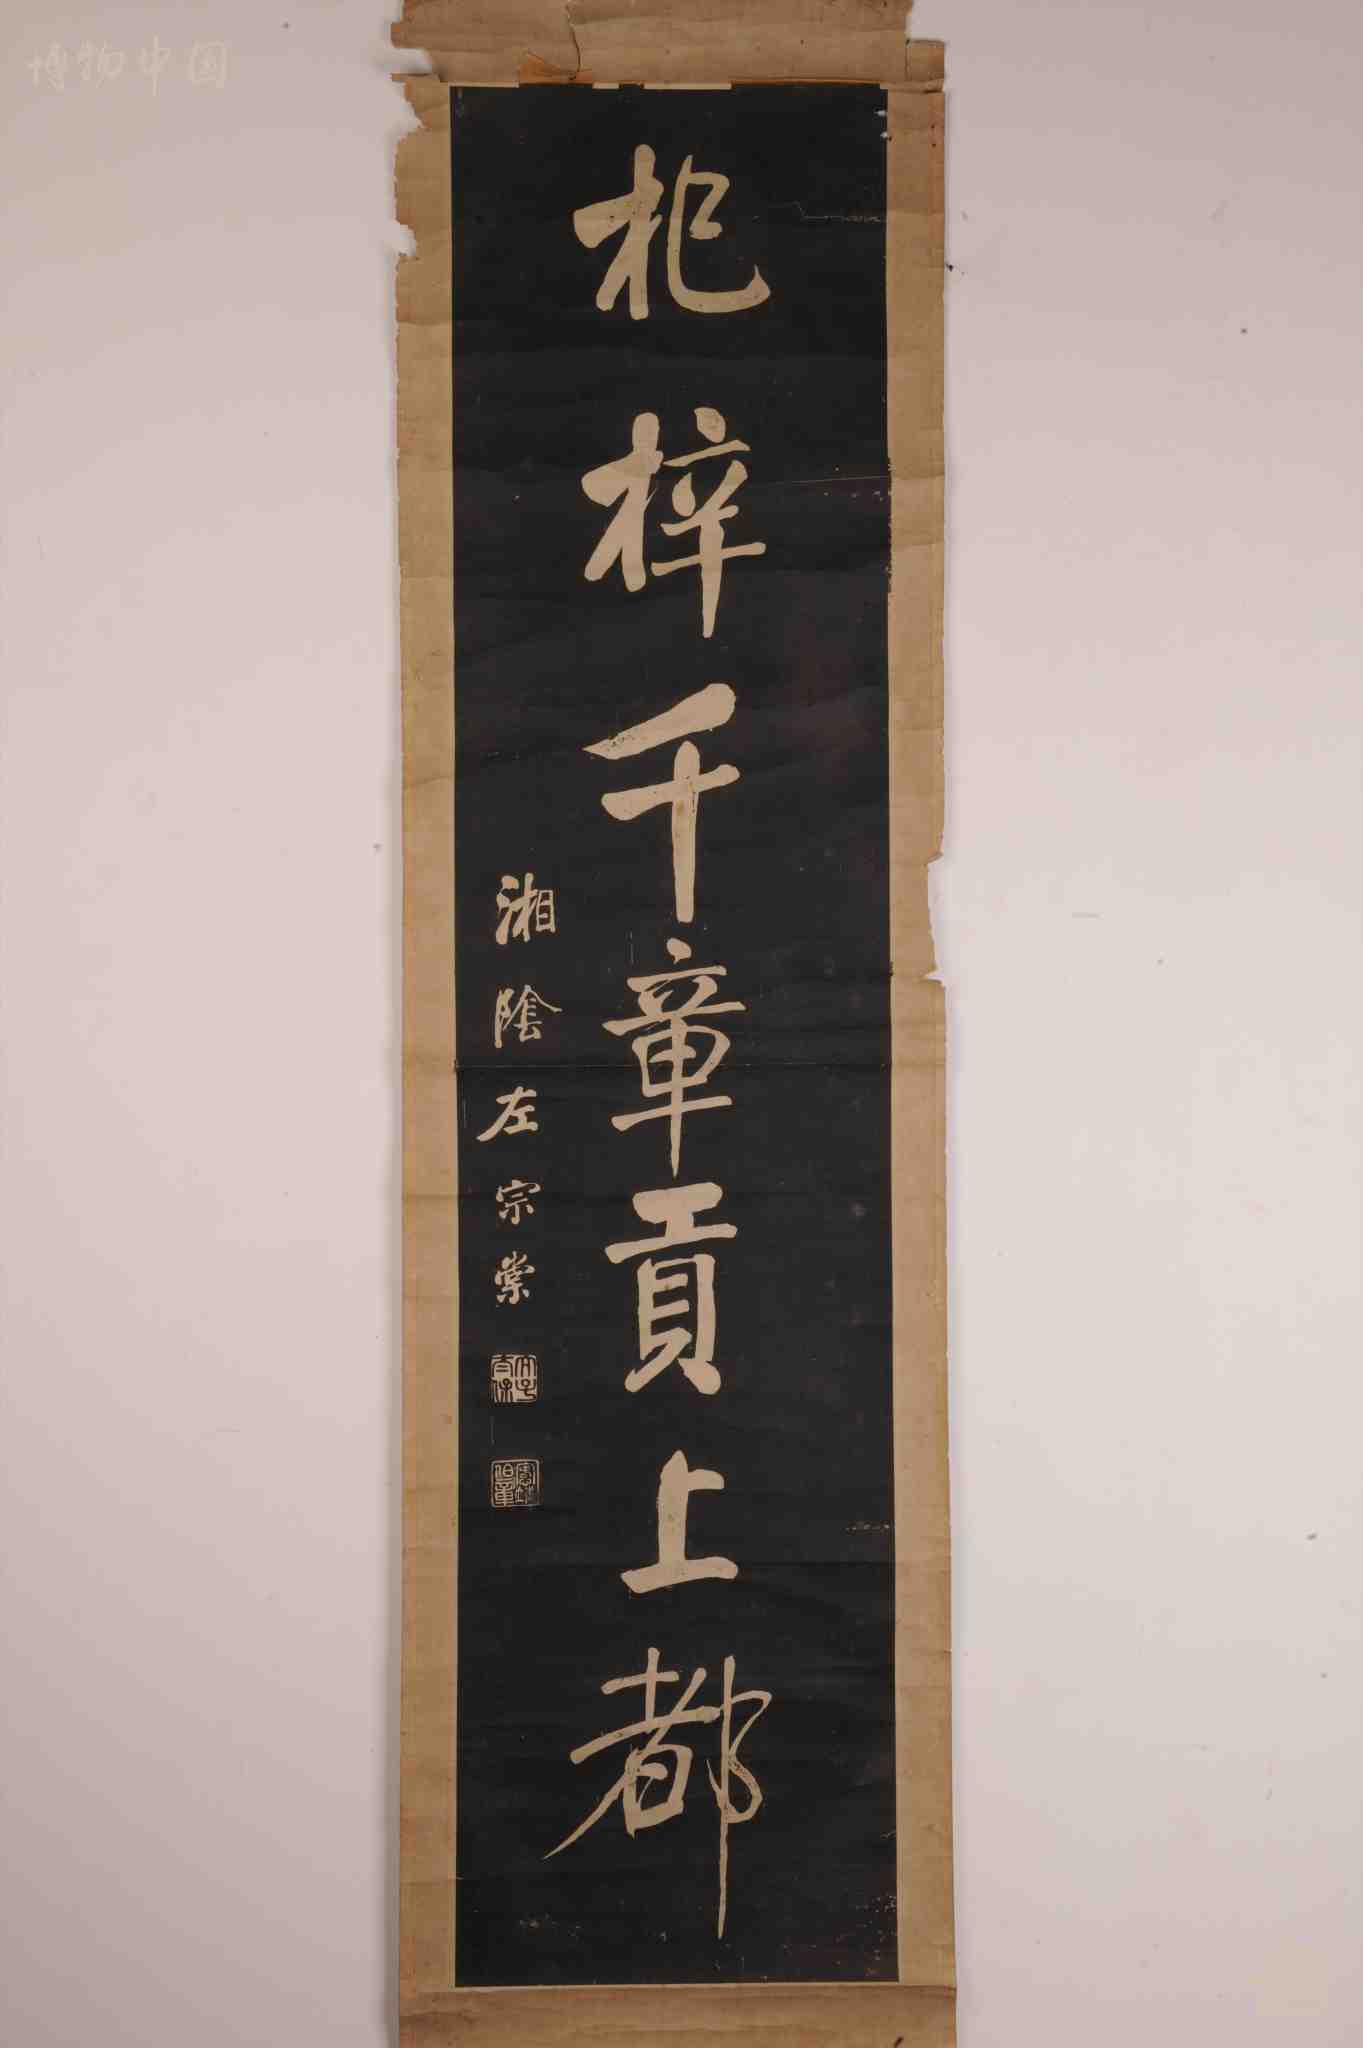 博物中国
杞梓千章貢上都
湘陰左宗棠
太子太保